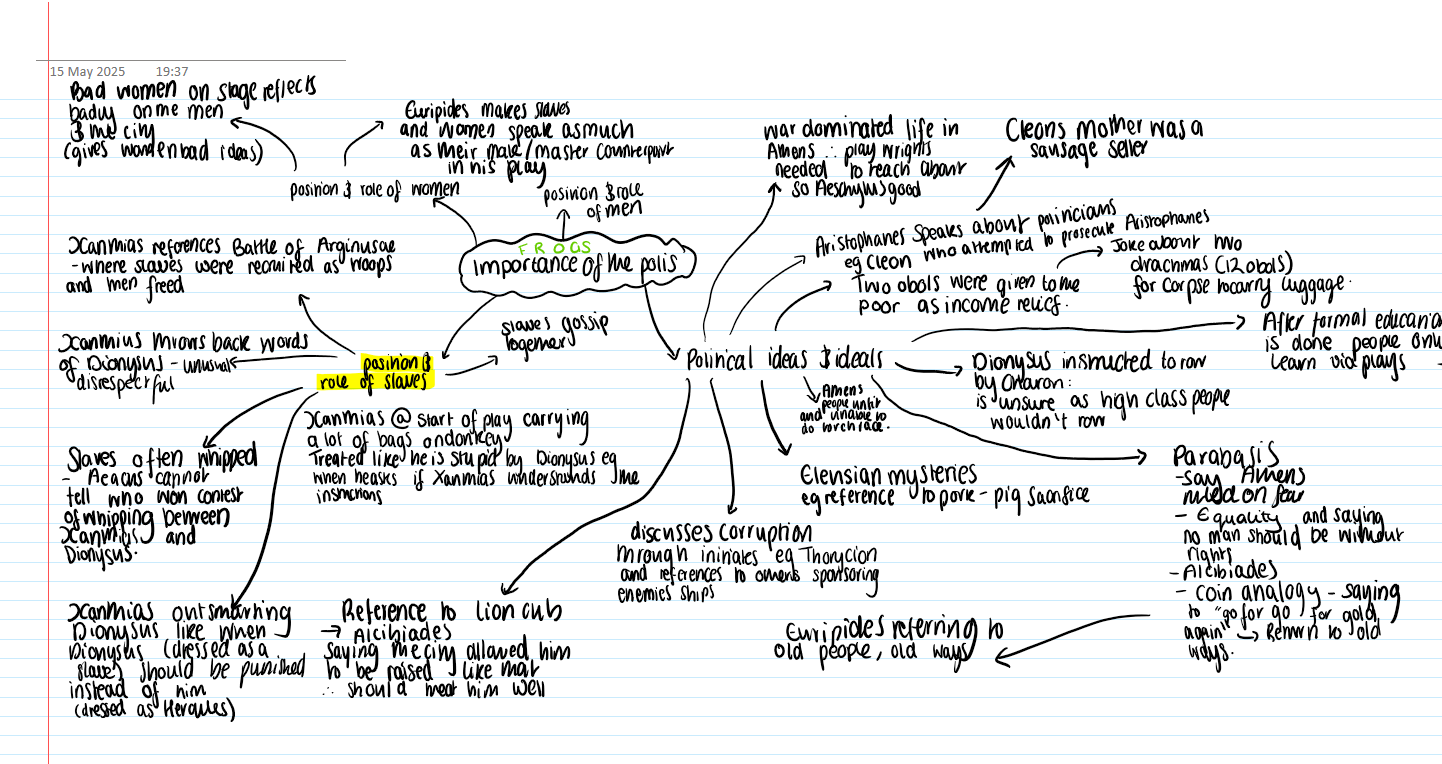 15 May 2025 19:37
Bad women on stage reflects
badly on the men
& the city
(gives women bad ideas)
Euripides makes slaves
and women speak as much
as their male/master counterpoint
in his play
position & role of women
position & role
of men
FROGS
importance of the polis
war dominated life in
Athens ∴ play wrights
needed to teach about
so Aeschylus good
Cleons mother was a
sausage seller
Aristophanes speaks about politicians
eg Cleon who attempted to prosecute Aristophanes
Two obols were given to the
poor as income relief.
Joke about two
drachmas (12 obols)
for corpse to carry luggage.
Xanthias references Battle of Arginusae
- where slaves were recruited as troops
and then freed
Xanthius throws back words
of Dionysus - unusual
disrespectful
position &
role of slaves
slaves gossip
together
Political ideas & ideals
After formal educatio
is done people onl
learn via plays
Dionysus instructed to row
by Charon:
is unsure as high class people
wouldn't row
Athens
people unfit
and unable to
do torch race.
Xanthias @ start of play carrying
a lot of bags on donkey
Treated like he is stupid by Dionysus eg
when he asks if Xanthias understands the
instructions
Slaves often whipped
- Aeacus cannot
tell who won contest
of whipping between
Xanthius and
Dionysus.
Xanthias outsmarting
Dionysus like when
Dionysus (dressed as a
slave) should be punished
instead of him
(dressed as Hercules)
Reference to lion cub
→ Alcibiades
saying the city allowed him
to be raised like that
∴ should treat him well
discusses corruption
through initiates eg Thorycion
and references to others sponsoring
enemies ships
Elensian mysteries
eg reference to pork - pig sacrifice
Parabasis
- say Athens
ruled on fear
- Equality and saying
no man should be without
rights
- Alcibiades
- coin analogy - saying
to "go for go for gold
again" → Return to old
ways.
Euripides referring to
old people, old ways